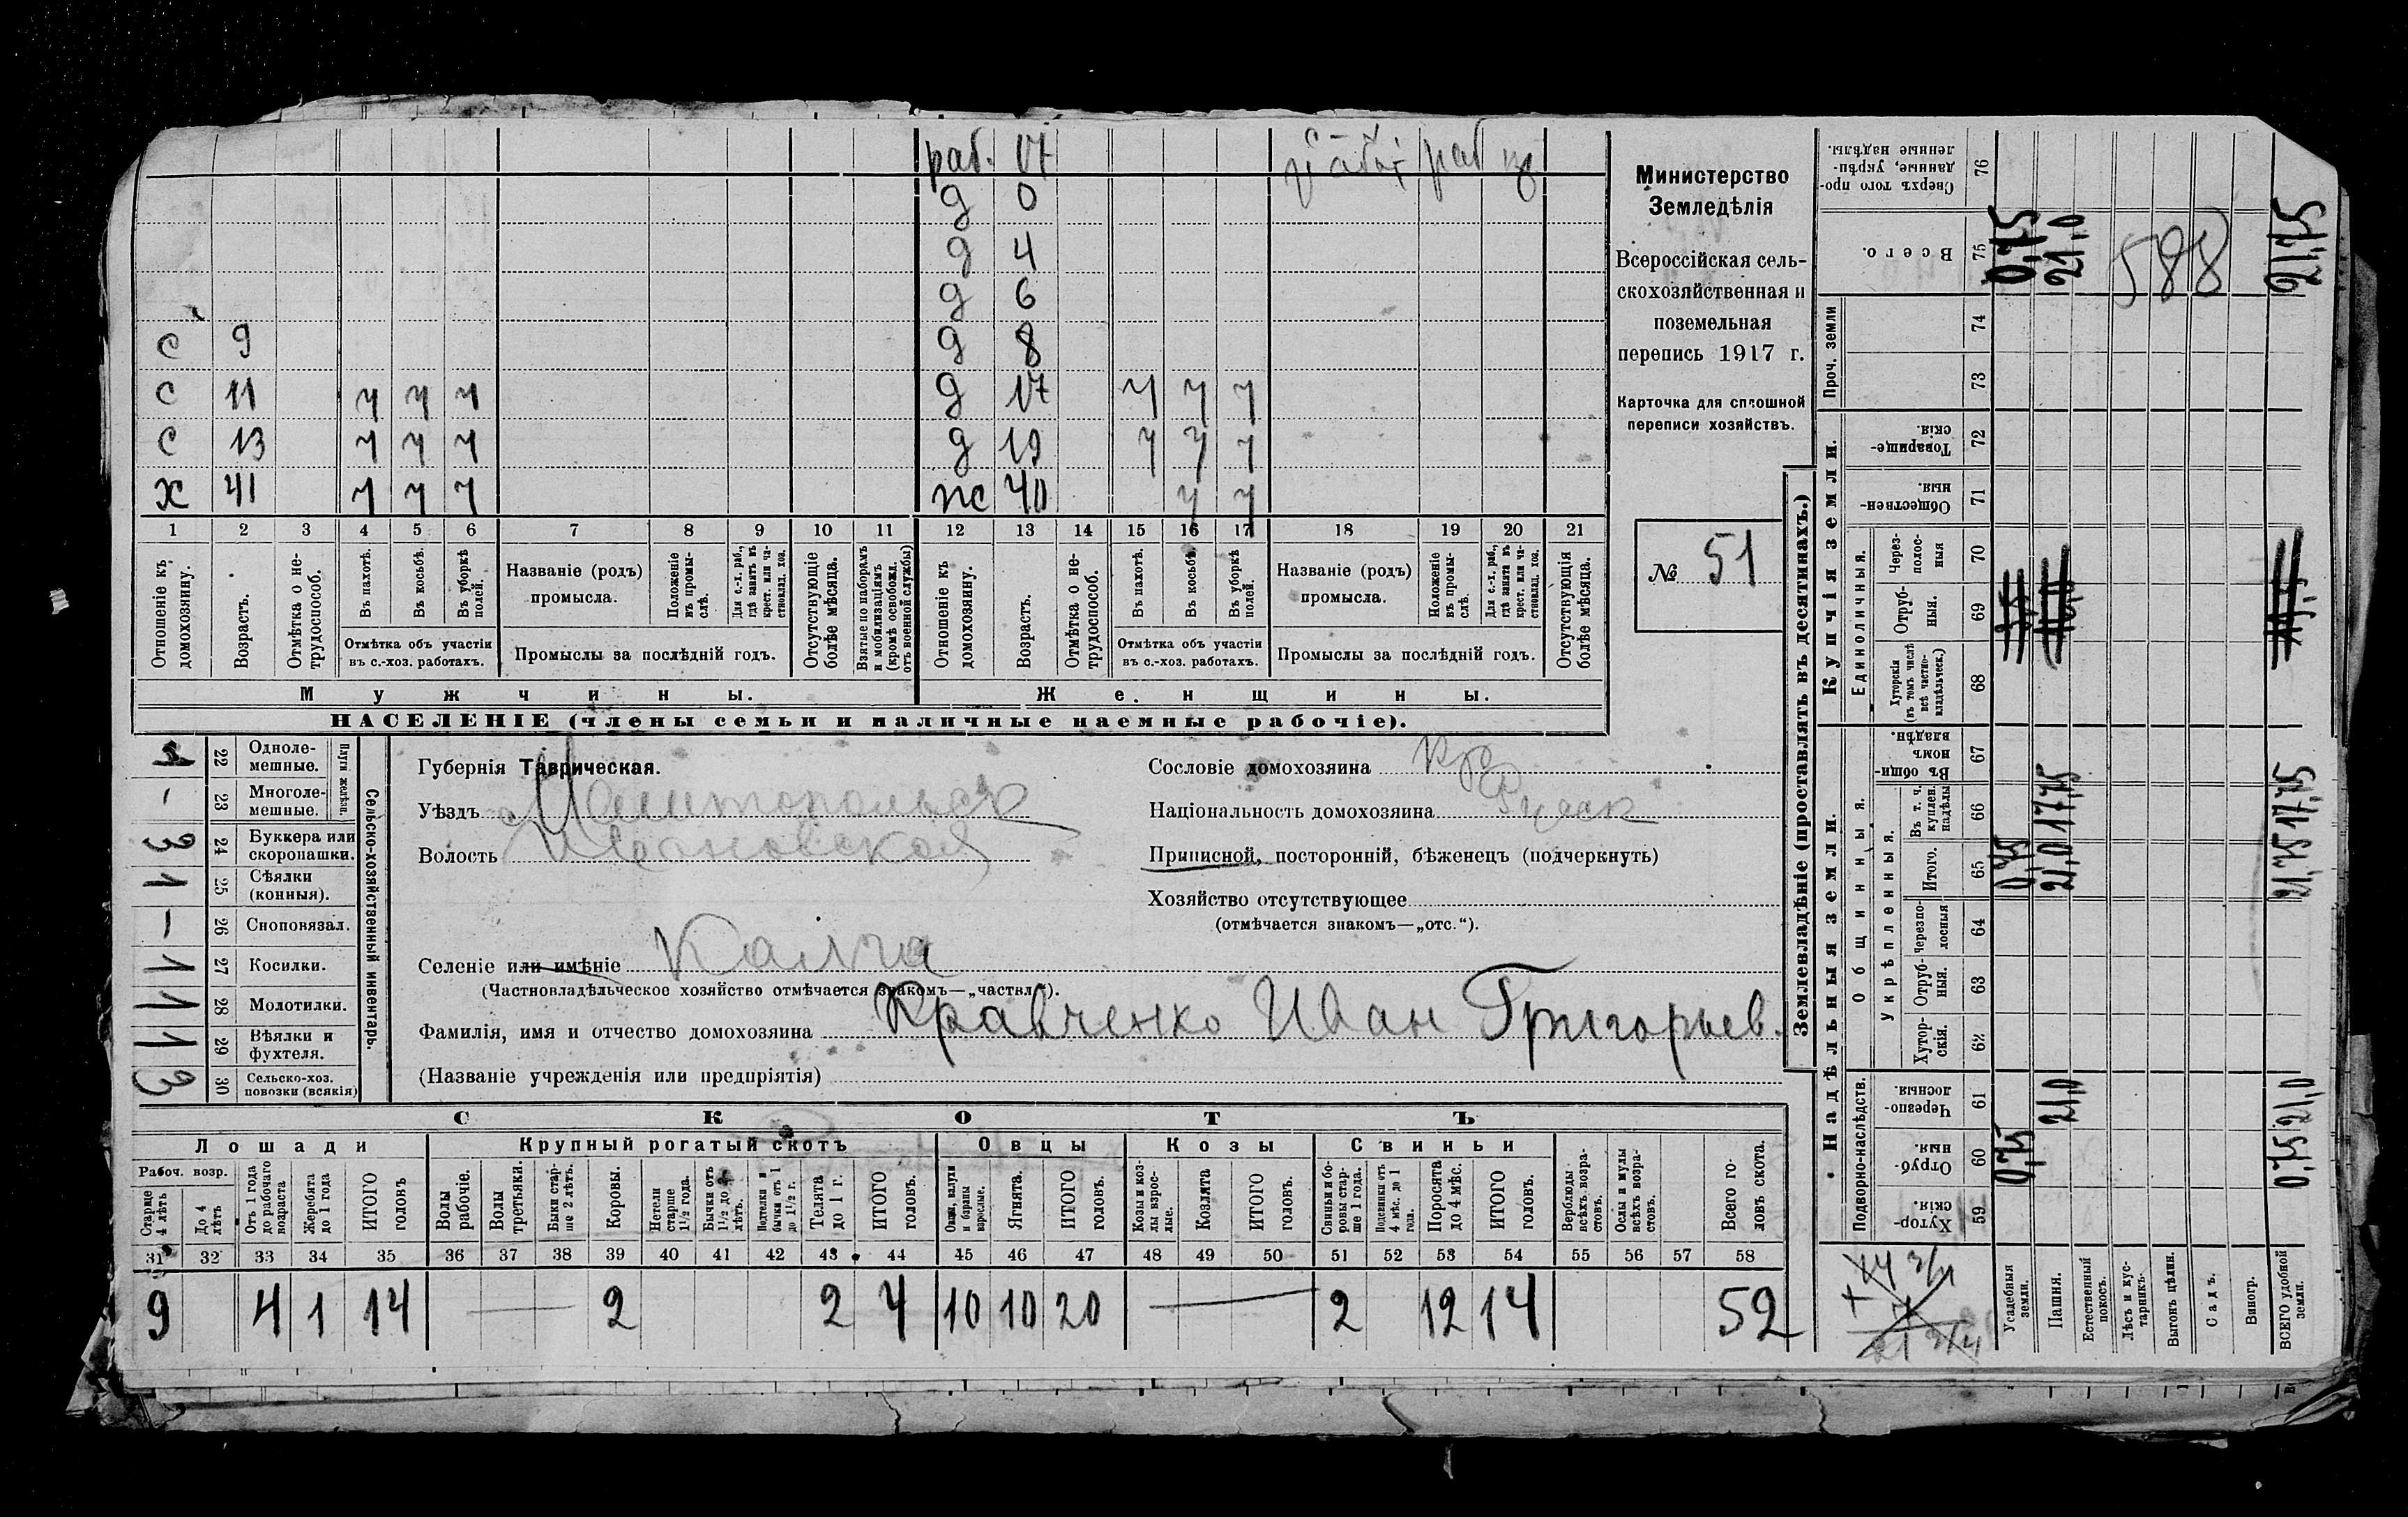 раб. 17 раб
д 0
д 4
д 6
с 9 д 8
с 11 ч ч ч д 17 ч ч ч
с 13 ч ч ч д 19 ч ч ч
х 41 ч ч ч ж 40 ч ч
1 2 3 4 5 6 7 8 9 10 11 12 13 14 15 16 17 18 19 20 21
Отношеніе къ домохозяину.
Возрастъ.
Отмѣтка о не-трудоспособ.
Въ пахотѣ.
Въ косьбѣ.
Въ уборкѣ полей.
Отмѣтка объ участіи
въ с.-хоз. работахъ.
Названіе (родъ)
промысла.
Положеніе въ промы-слѣ.
Для с.-х. раб., гдѣ занятъ въ крест. или ча-стновлад. хоз.
Промыслы за послѣдній годъ.
Отсутствующіе болѣе мѣсяца.
Взятые по наборамъ и мобилизаціямъ (кромѣ освобожд. отъ военной службы)
Отношеніе къ домохозяину.
Возрастъ.
Отмѣтка о не-трудоспособ.
Въ пахотѣ.
Въ косьбѣ.
Въ уборкѣ полей.
Отмѣтка объ участіи
въ с.-хоз. работахъ.
Названіе (родъ)
промысла.
Положеніе въ промы-слѣ.
Для с.-х. раб., гдѣ занята въ крест. или ча-стновлад. хоз.
Промыслы за послѣдній годъ.
Отсутствующія болѣе мѣсяца.
Мужчины. Женщины.
НАСЕЛЕНІЕ (члены семьи и наличные наемные рабочіе).
Министерство
Земледѣлія
Всероссійская сель-
скохозяйственная и
поземельная
перепись 1917 г.
Карточка для сплошной
переписи хозяйствъ.
№ 51
Сельско-хозяйственный инвентарь.
Плуги желѣзн.
22 Одноле-мешные.
– 23 Многоле-мешные.
3 24 Буккера или скоропашки.
1 25 Сѣялки (конныя).
– 26 Сноповязал.
1 27 Косилки.
1 28 Молотилки.
1 29 Вѣялки и фухтеля.
3 30 Сельско-хоз. повозки (всякія)
Губернія Таврическая.
Уѣздъ Мелитопольск
Волость Ивановской
Селеніе или имѣніе Каїлга
(Частновладѣльческое хозяйство отмѣчается знакомъ—„частвл.“).
Фамилія, имя и отчество домохозяина Кравченко Иван Григорьев.
(Названіе учрежденія или предпріятія)
Сословіе домохозяина Кр
Національность домохозяина Русск
Приписной, посторонній, бѣженецъ (подчеркнуть)
Хозяйство отсутствующее
(отмѣчается знакомъ—„отс.“).
СКОТЪ
Лошади Крупный рогатый скотъ Овцы Козы Свиньи
Рабоч. возр.
Старше 4 лѣтъ
До 4 лѣтъ
Отъ 1 года до рабочаго возраста
Жеребята до 1 года
ИТОГО головъ
Волы рабочіе.
Волы третьяки.
Быки стар-ше 2 лѣтъ.
Коровы.
Нетели старше 1½ года.
Бычки отъ 1½ до 2-х лѣтъ.
Подтелки и бычки отъ 1 до 1½ г.
Телята до 1 г.
ИТОГО головъ.
Овцы, валухи и бараны взрослые.
Ягнята.
ИТОГО головъ.
Козы и коз-лы взрос-лые.
Козлята
ИТОГО головъ.
Свиньи и бо-ровы стар-ше 1 года.
Подсвинки отъ 4 мѣс. до 1 года.
Поросята до 4 мѣс.
ИТОГО головъ.
Верблюды всѣхъ возра-стовъ.
Ослы и мулы всѣхъ возра-стовъ.
Всего го-ловъ скота.
31 32 33 34 35 36 37 38 39 40 41 42 43 44 45 46 47 48 49 50 51 52 53 54 55 56 57 58
9 4 1 14 — 2 2 4 10 10 20 — 2 12 14 52
Землевладѣніе (проставлять въ десятинахъ.)
Надѣльныя земли. Купчія земли.
Подворно-наслѣдств. Общинныя. Укрѣпленныя. Единоличныя. Проч. земли
Хутор-скія. 59
Отруб-ныя. 60
Черезпо-лосныя 61
Хутор-скія. 62
Отруб-ныя. 63
Черезпо-лосныя 64
Итого. 65
Въ т. ч. куплен. надѣлы 66
Въ общин-номъ владѣн. 67
Хуторскія (въ томъ числѣ всѣ частно-владѣльческ.) 68
Отруб-ныя. 69
Через-полос-ныя 70
Обществен-ныя. 71
Товарище-скія. 72
73
74
Всего. 75
Сверхъ того про-данные, укрѣп-ленные надѣлы. 76
Усадебныя земли. 0,75 0,75 0,75
Пашня. 21,0 21,0 17,75 21,0
Естественный покосъ.
Лѣсъ и кус-тарникъ.
588
Выгонъ цѣлин.
Садъ.
Виногр.
ВСЕГО удобной земли. 0,75 21,0 21,75 17,75 21,75